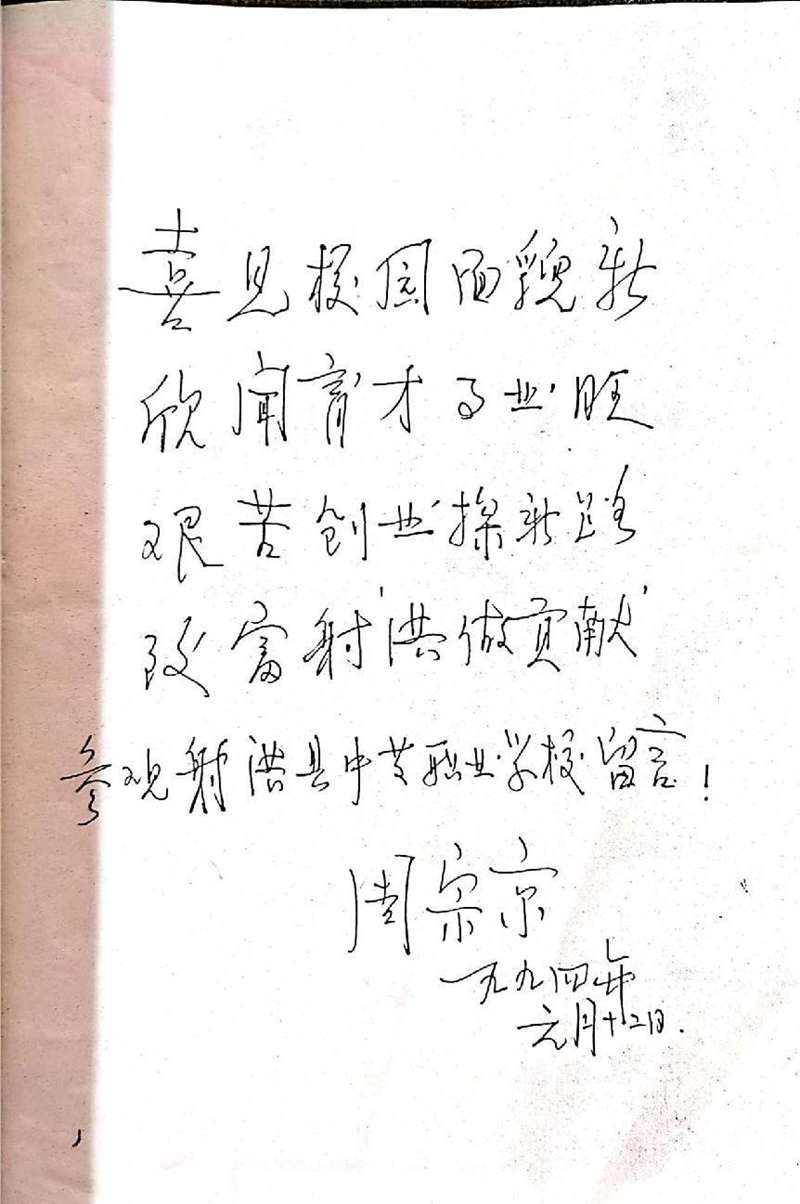 喜见校园面貌新
欣闻育才事业旺
艰苦创业探新路
致富射洪做贡献
参观射洪县中等职业学校留言!
周宗京
一九九四年
六月十二日.